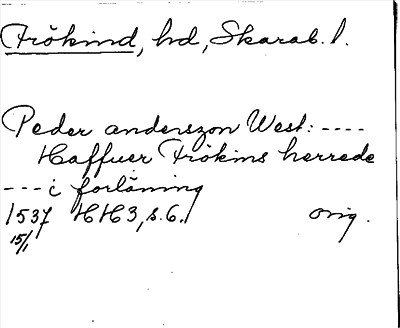 Frökind, hd, Skarab. l.
Peder anderszon West: ----
Haffuer Frökins herrede
--- i förläning
1537 HH3, s. 6. orig.
15/1